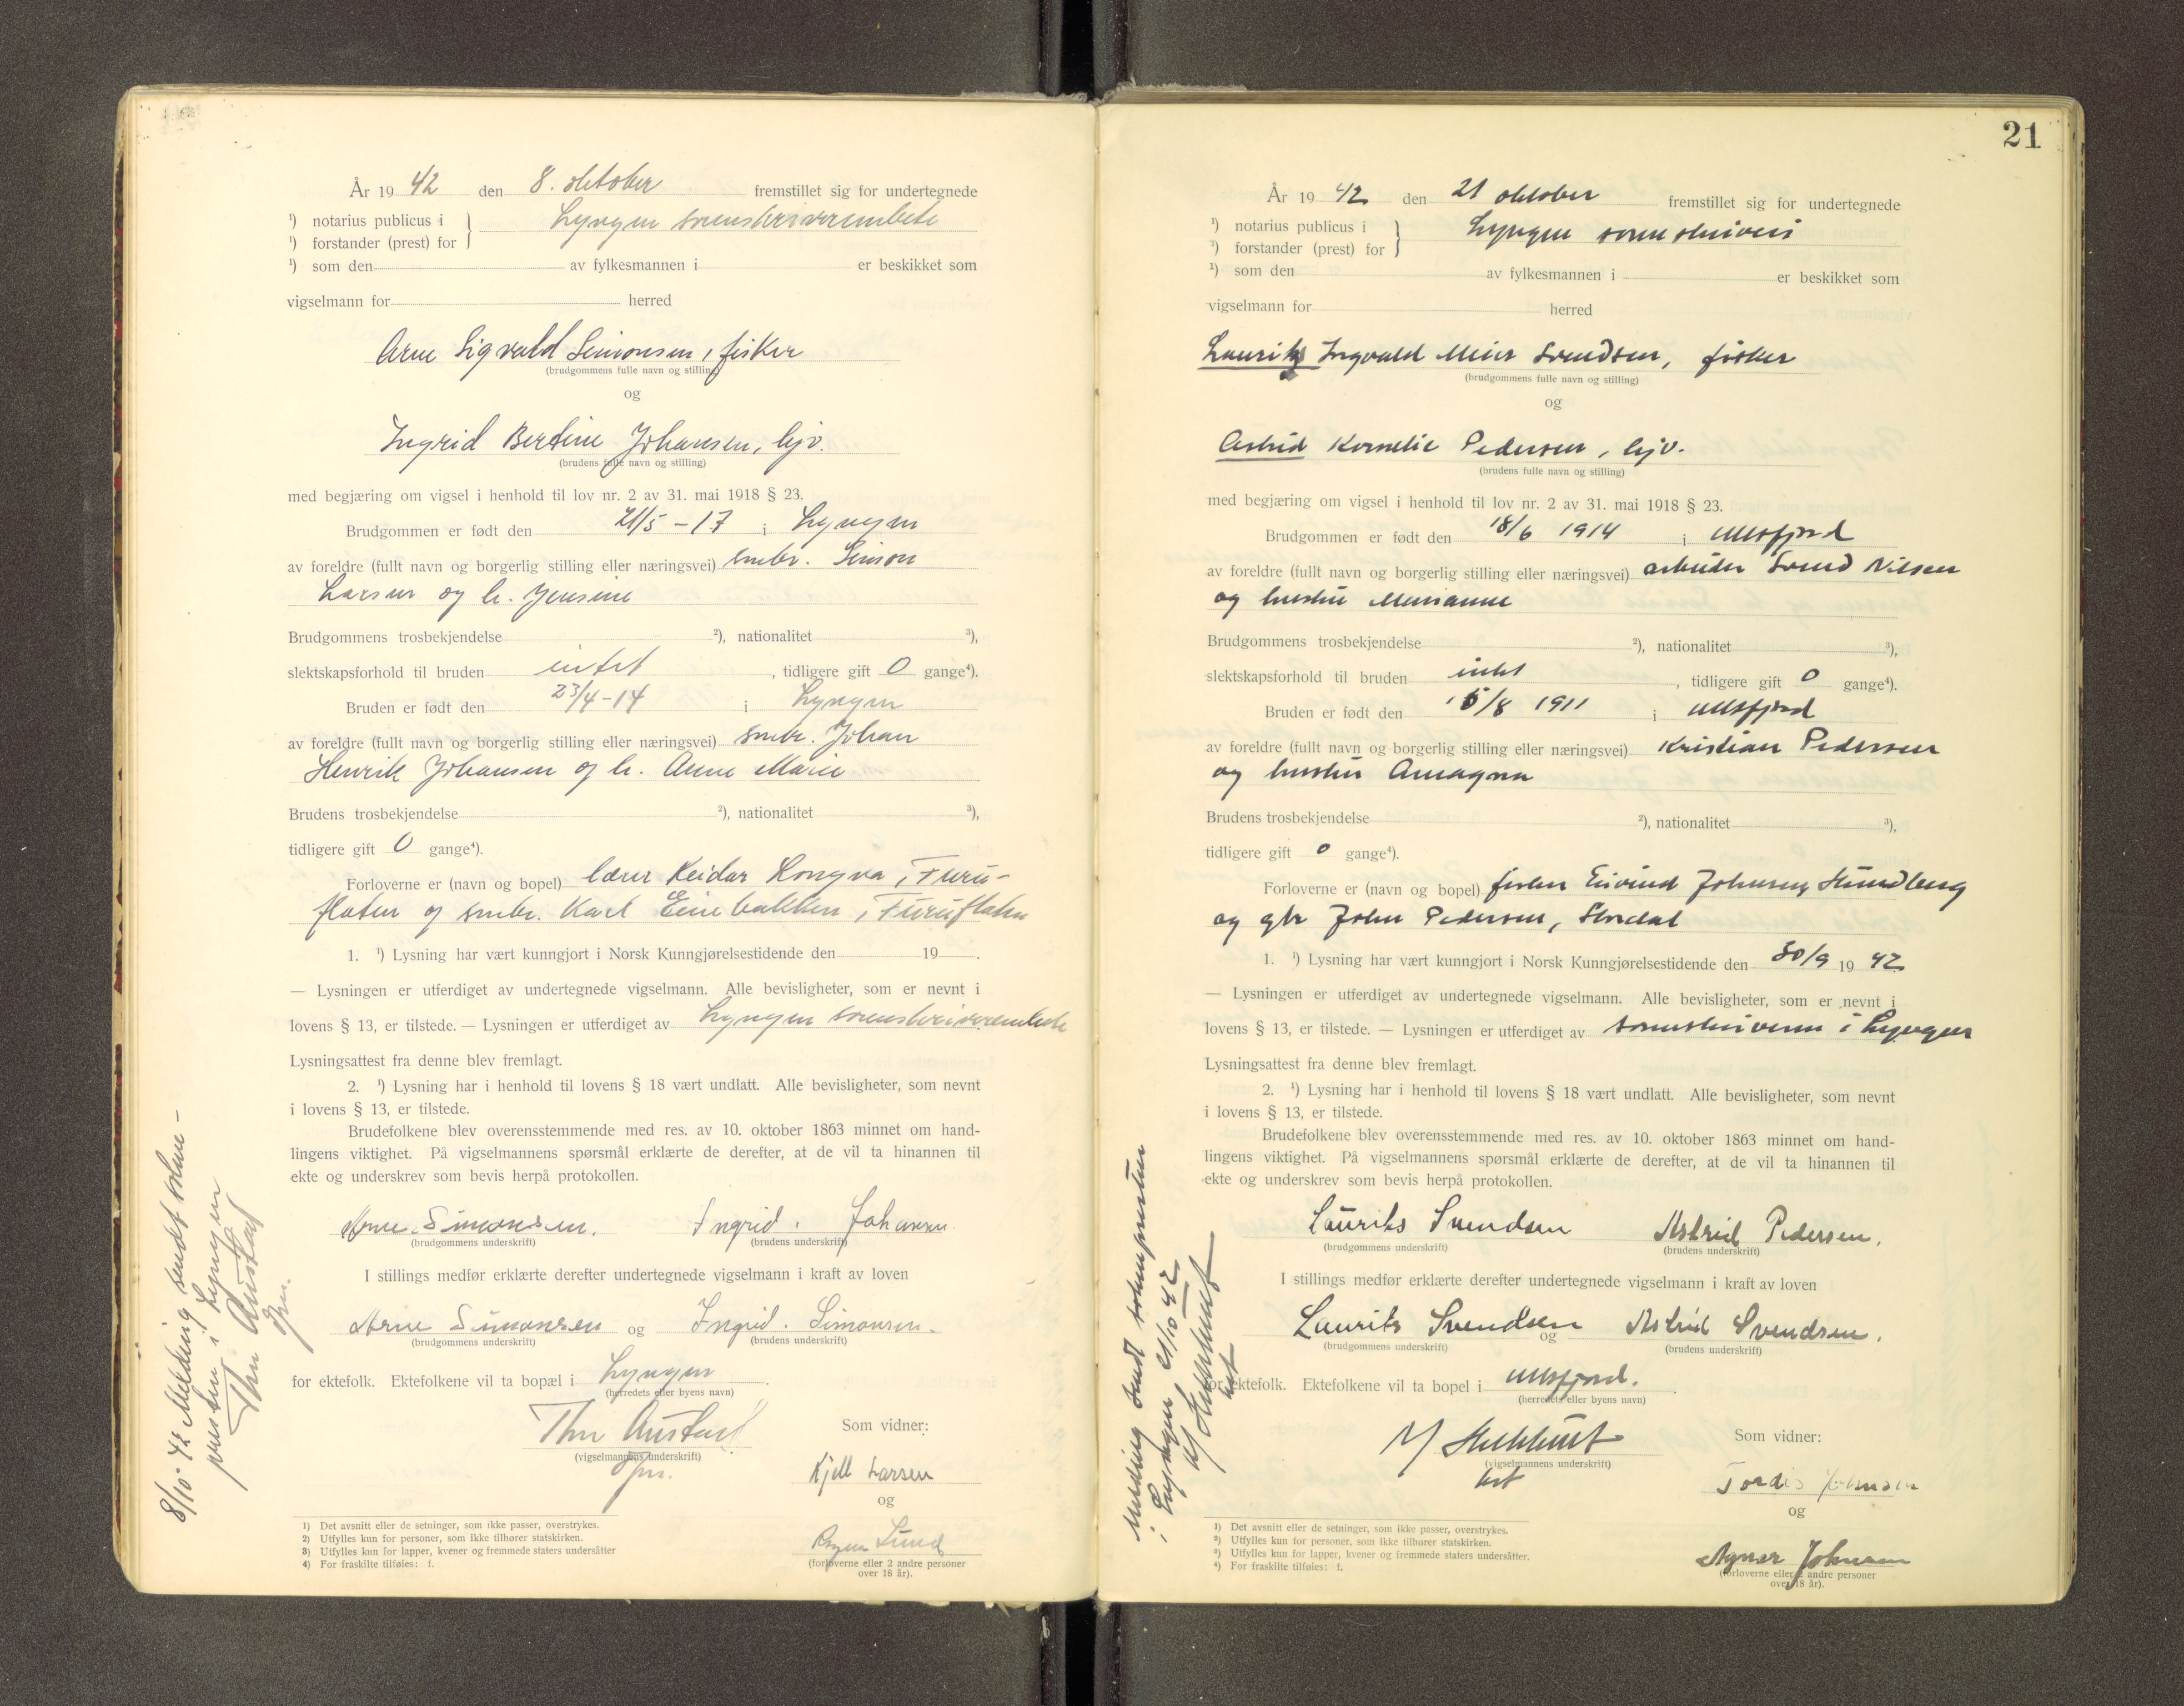 År 19 42 den 8. oktober fremstillet sig for undertegnede
¹) notarius publicus i } Lyngen sorenskriverembete
¹) forstander (prest) for
¹) som den av fylkesmannen i er beskikket som
vigselmann for herred
Arne Sigvald Simonsen, fisker
(brudgommens fulle navn og stilling)
og
Ingrid Bertine Johansen, hjv.
(brudens fulle navn og stilling)
med begjæring om vigsel i henhold til lov nr. 2 av 31. mai 1918 § 23.
Brudgommen er født den 21/5 - 17 i Lyngen
av foreldre (fullt navn og borgerlig stilling eller næringsvei) smbr. Simon
Larsen og h. Jensine
Brudgommens trosbekjendelse ²), nationalitet ³),
slektskapsforhold til bruden intet , tidligere gift 0 gange⁴).
Bruden er født den 23/4 - 14 i Lyngen
av foreldre (fullt navn og borgerlig stilling eller næringsvei) smbr. Johan
Henrik Johansen og h. Anne Marie
Brudens trosbekjendelse ²), nationalitet ³),
tidligere gift 0 gange⁴).
Forloverne er (navn og bopel) lærer Reidar Longva, Furu-
flaten og smbr. Karl Einebakken, Furuflaten
1. ¹) Lysning har vært kunngjort i Norsk Kunngjørelsestidende den 19 .
— Lysningen er utferdiget av undertegnede vigselmann. Alle bevisligheter, som er nevnt i
lovens § 13, er tilstede. — Lysningen er utferdiget av Lyngen sorenskriverembete
Lysningsattest fra denne blev fremlagt.
2. ¹) Lysning har i henhold til lovens § 18 vært undlatt. Alle bevisligheter, som nevnt
i lovens § 13, er tilstede.
Brudefolkene blev overensstemmende med res. av 10. oktober 1863 minnet om hand-
lingens viktighet. På vigselmannens spørsmål erklærte de derefter, at de vil ta hinannen til
ekte og underskrev som bevis herpå protokollen.
Arne Simonsen. Ingrid. Johansen
(brudgommens underskrift) (brudens underskrift)
I stillings medfør erklærte derefter undertegnede vigselmann i kraft av loven
Arne Simonsen og Ingrid. Simonsen.
(brudgommens underskrift) (brudens underskrift)
for ektefolk. Ektefolkene vil ta bopæl i Lyngen .
(herredets eller byens navn)
Thor Austad
(vigselmannens underskrift)
Som vidner:
Kjell Larsen
og
Lund
(forloverne eller 2 andre personer
over 18 år).
¹) Det avsnitt eller de setninger, som ikke passer, overstrykes.
²) Utfylles kun for personer, som ikke tilhører statskirken.
³) Utfylles kun for lapper, kvener og fremmede staters undersåtter
⁴) For fraskilte tilføies: f.
8/10-42 Melding sendt sokne-
presten i Lyngen
Thor Austad
21
År 19 42 den 21 oktober fremstillet sig for undertegnede
¹) notarius publicus i } Lyngen sorenskriveri
¹) forstander (prest) for
¹) som den av fylkesmannen i er beskikket som
vigselmann for herred
Lauritz Ingvald Meier Svendsen, fisker
(brudgommens fulle navn og stilling)
og
Astrid Kornelie Pedersen, hjv.
(brudens fulle navn og stilling)
med begjæring om vigsel i henhold til lov nr. 2 av 31. mai 1918 § 23.
Brudgommen er født den 18/6 1914 i Ullsfjord
av foreldre (fullt navn og borgerlig stilling eller næringsvei) arbeider Svend Nilsen
og hustru Marianne
Brudgommens trosbekjendelse ²), nationalitet ³),
slektskapsforhold til bruden intet , tidligere gift 0 gange⁴).
Bruden er født den 15/8 1911 i Ullsfjord
av foreldre (fullt navn og borgerlig stilling eller næringsvei) Kristian Pedersen
og hustru Anagna
Brudens trosbekjendelse ²), nationalitet ³),
tidligere gift 0 gange⁴).
Forloverne er (navn og bopel) fisker Eivind Johnsen
og gbr John Pedersen, Stordal
1. ¹) Lysning har vært kunngjort i Norsk Kunngjørelsestidende den 30/9 19 42
— Lysningen er utferdiget av undertegnede vigselmann. Alle bevisligheter, som er nevnt i
lovens § 13, er tilstede. — Lysningen er utferdiget av sorenskriveren i Lyngen
Lysningsattest fra denne blev fremlagt.
2. ¹) Lysning har i henhold til lovens § 18 vært undlatt. Alle bevisligheter, som nevnt
i lovens § 13, er tilstede.
Brudefolkene blev overensstemmende med res. av 10. oktober 1863 minnet om hand-
lingens viktighet. På vigselmannens spørsmål erklærte de derefter, at de vil ta hinannen til
ekte og underskrev som bevis herpå protokollen.
Lauritz Svendsen Astrid Pedersen.
(brudgommens underskrift) (brudens underskrift)
I stillings medfør erklærte derefter undertegnede vigselmann i kraft av loven
Lauritz Svendsen og Astrid Svendsen.
(brudgommens underskrift) (brudens underskrift)
for ektefolk. Ektefolkene vil ta bopel i Ullsfjord.
(herredets eller byens navn)
(vigselmannens underskrift)
Som vidner:
Tordis Johnsen
og
Agnar Johnsen
(forloverne eller 2 andre personer
over 18 år).
¹) Det avsnitt eller de setninger, som ikke passer, overstrykes.
²) Utfylles kun for personer, som ikke tilhører statskirken.
³) Utfylles kun for lapper, kvener og fremmede staters undersåtter.
⁴) For fraskilte tilføies: f.
Melding sendt soknepresten
i Lyngen 21/10 42